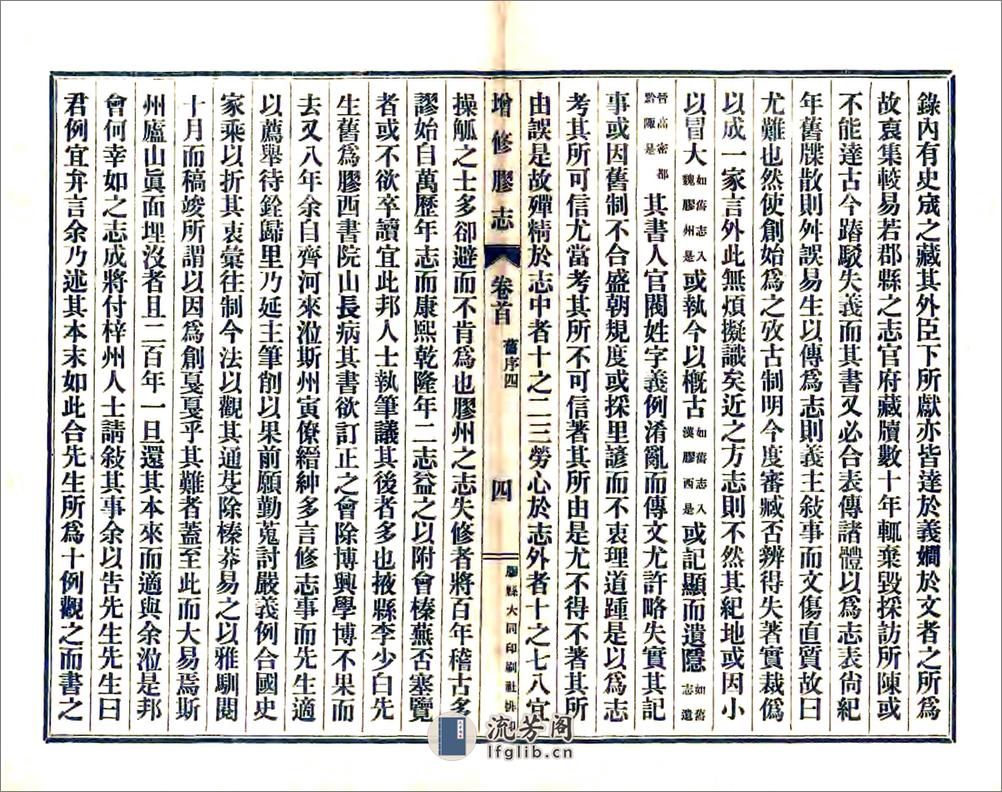 錄內有史宬之藏其外臣下所獻亦皆達於義嫺於文者之所爲
故裒集較易若郡縣之志官府藏牘數十年輒棄毀採訪所陳或
不能達古今踳駁失義而其書又必合表傳諸體以爲志表尙紀
年舊牒散則舛誤易生以傳爲志則義主敍事而文傷直質故曰
尤難也然使創始爲之攷古制明今度審臧否辨得失著實裁僞
以成一家言外此無煩擬議矣近之方志則不然其紀地或因小
以冒大如舊志入魏膠州是或執今以槪古如舊志入漢膠西是或記顯而遺隱如舊志遺
晉高密都黔陬是其書人官閥姓字義例淆亂而傳文尤許略失實其記
事或因舊制不合盛朝規度或採里諺而不衷理道踵是以爲志
考其所可信尤當考其所不可信著其所由是尤不得不著其所
由誤是故殫精於志中者十之二三勞心於志外者十之七八宜
增修膠志 卷首 舊序四 四 膠縣大同印刷社排
操觚之士多卻避而不肯爲也膠州之志失修者將百年稽古多
謬始自萬歷年志而康熙乾隆年二志益之以附會榛蕪否塞覽
者或不欲卒讀宜此邦人士執筆議其後者多也掖縣李少白先
生舊爲膠西書院山長病其書欲訂正之會除博興學博不果而
去又八年余自齊河來涖斯州寅僚縉紳多言修志事而先生適
以薦舉待銓歸里乃延主筆創以果前願勤蒐討嚴義例合國史
家乘以折其衷彙往制今法以觀其通芟除榛莽易之以雅馴閱
十月而稿竣所謂以因爲創戛戛乎其難者蓋至此而大易焉斯
州廬山眞面埋沒者且二百年一旦還其本來而適與余涖是邦
會何幸如之志成將付梓州人士請敍其事余以告先生先生曰
君例宜弁言余乃述其本末如此合先生所爲十例觀之而書之
流芳阁
lfglib.cn